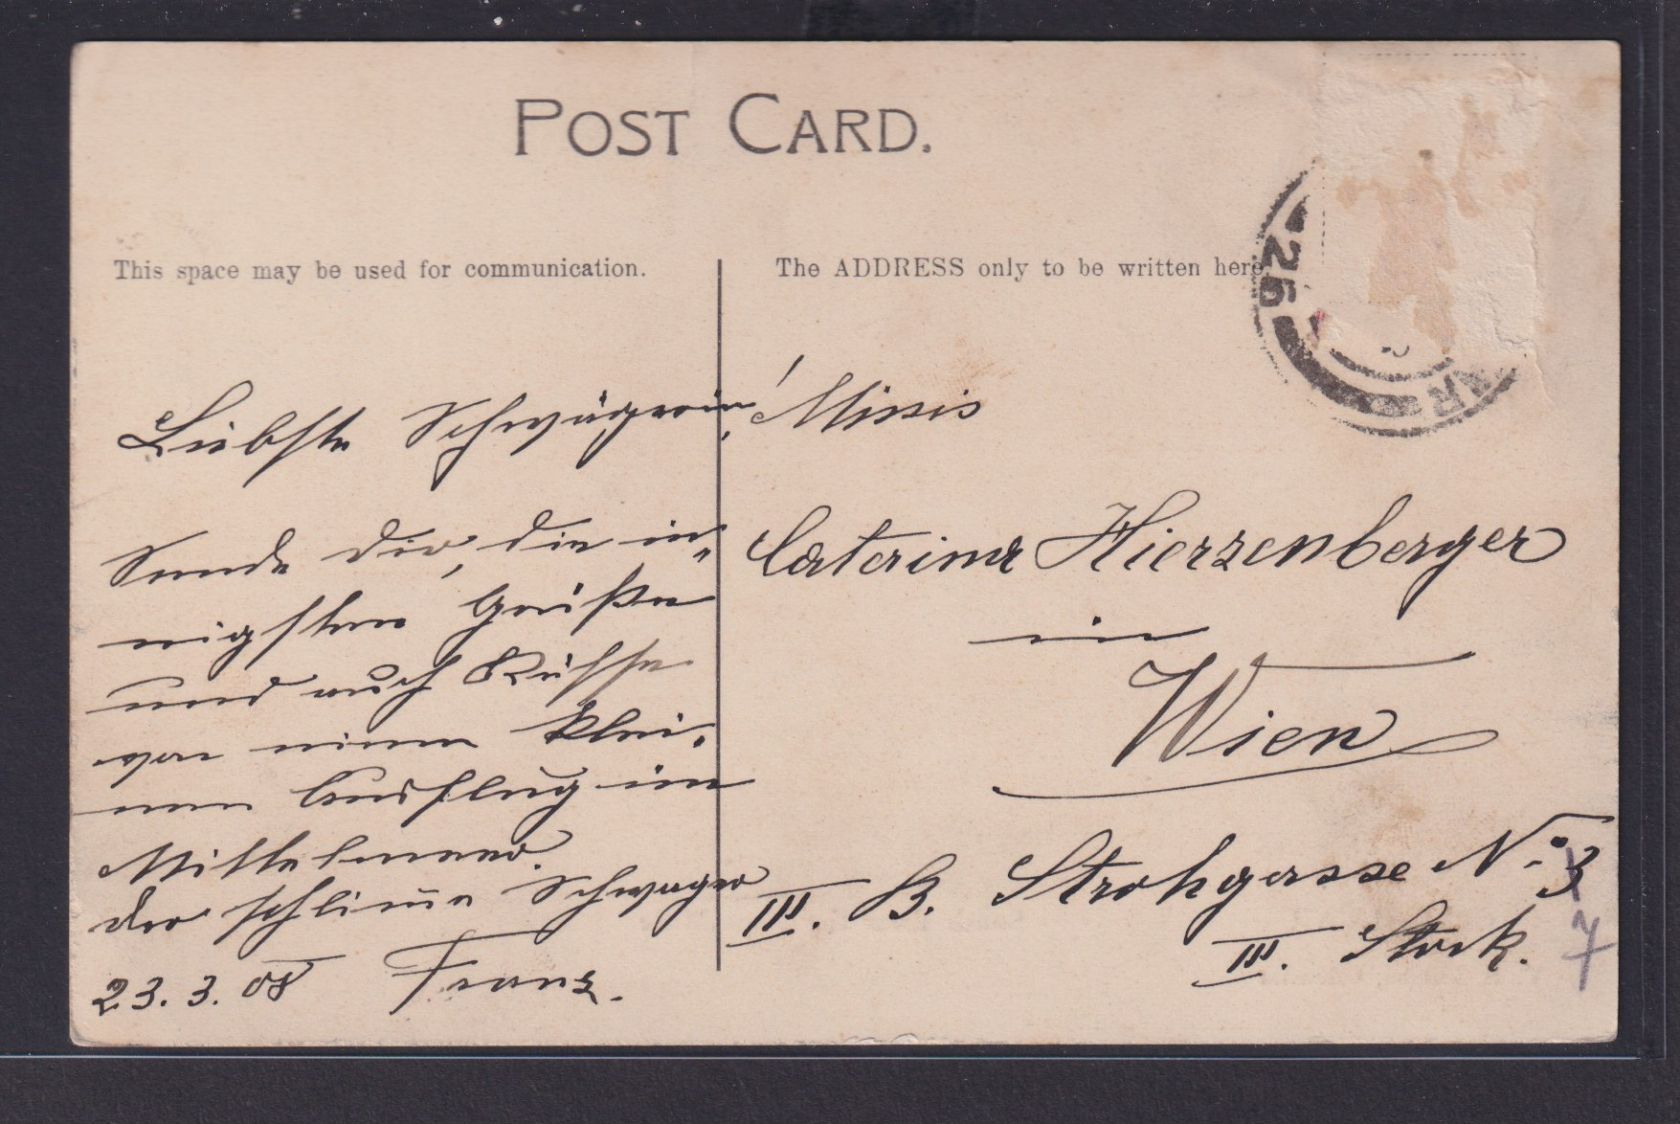 POST CARD.
This space may be used for communication.
The ADDRESS only to be written here.
25
AR
Liebste Schwägerin!
Sende dir, die in-
nigsten Grüße
und auch Küsse
von einem klei-
nen Ausflug im
Mittelmeer.
der schlimme Schwager
23. 3. 08 Franz.
Missis
Caterina Hierzenberger
in
Wien
III. B. Strohgasse No. 3
7
III. Stock.